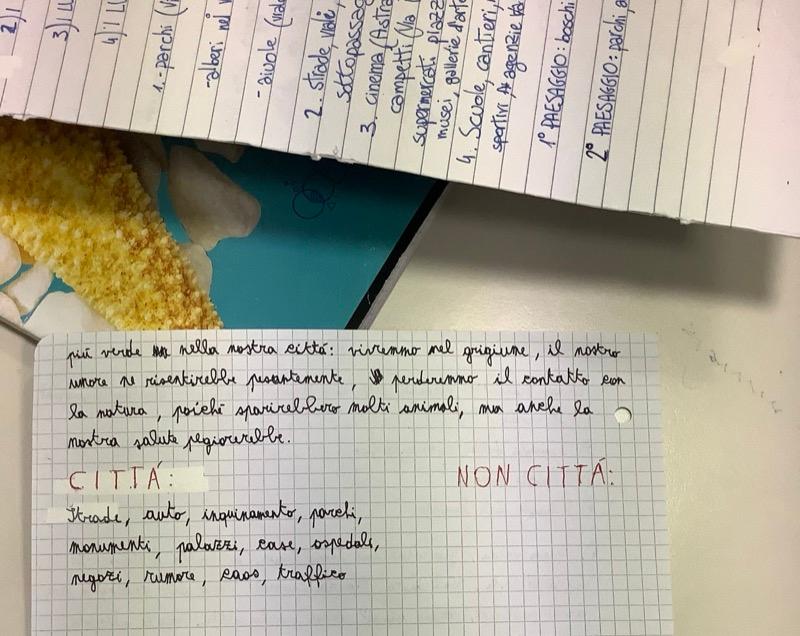 2)
3) IL
4) il LU
1.- parchi (Vi
- alberi nel V
- aiuole (viale
2. strade, viale,
sottopassag
3. cinema (Astra
campetti (Via
supermercati, piazz
musei, gallerie d'arte
4. Scuole, cantieri,
sportivi, agenzie
1° PAESAGGIO: boschi
2° PAESAGGIO: parchi, a
più verde nella nostra città: vivremmo nel grigiume, il nostro
umore ne risentirebbe pesantemente, perderemmo il contatto con
la natura, poiché sparirebbero molti animali, ma anche la
nostra salute pegiorerebbe.
CITTÁ: NON CITTÁ:
Strade, auto, inquinamento, parchi,
monumenti, palazzi, case, ospedali,
negozi, rumore, caos, traffico